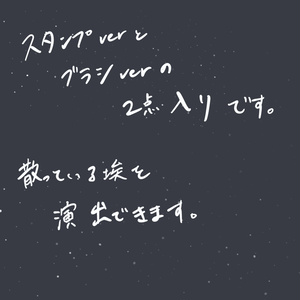 スタンプverと
ブラシverの
2点入りです。
散っている埃を
演出できます。